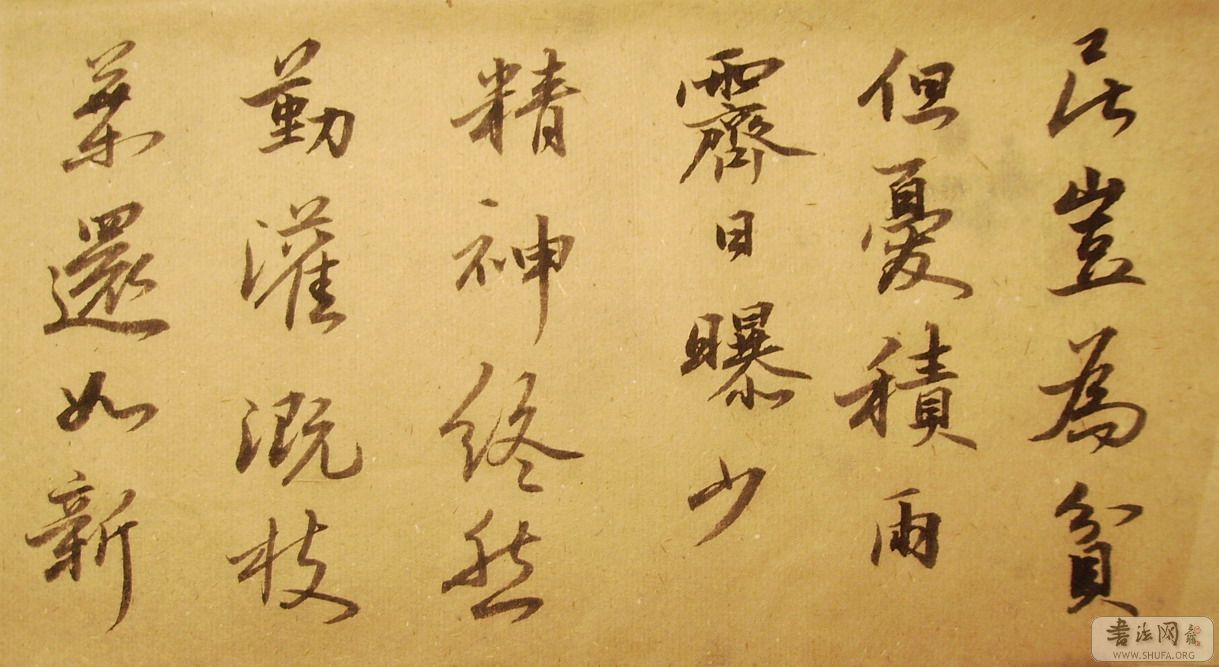 居豈為貧
但憂積雨
霽日曝少
精神終然
勤灌溉枝
葉還如新
書法网
WWW.SHUFA.ORG